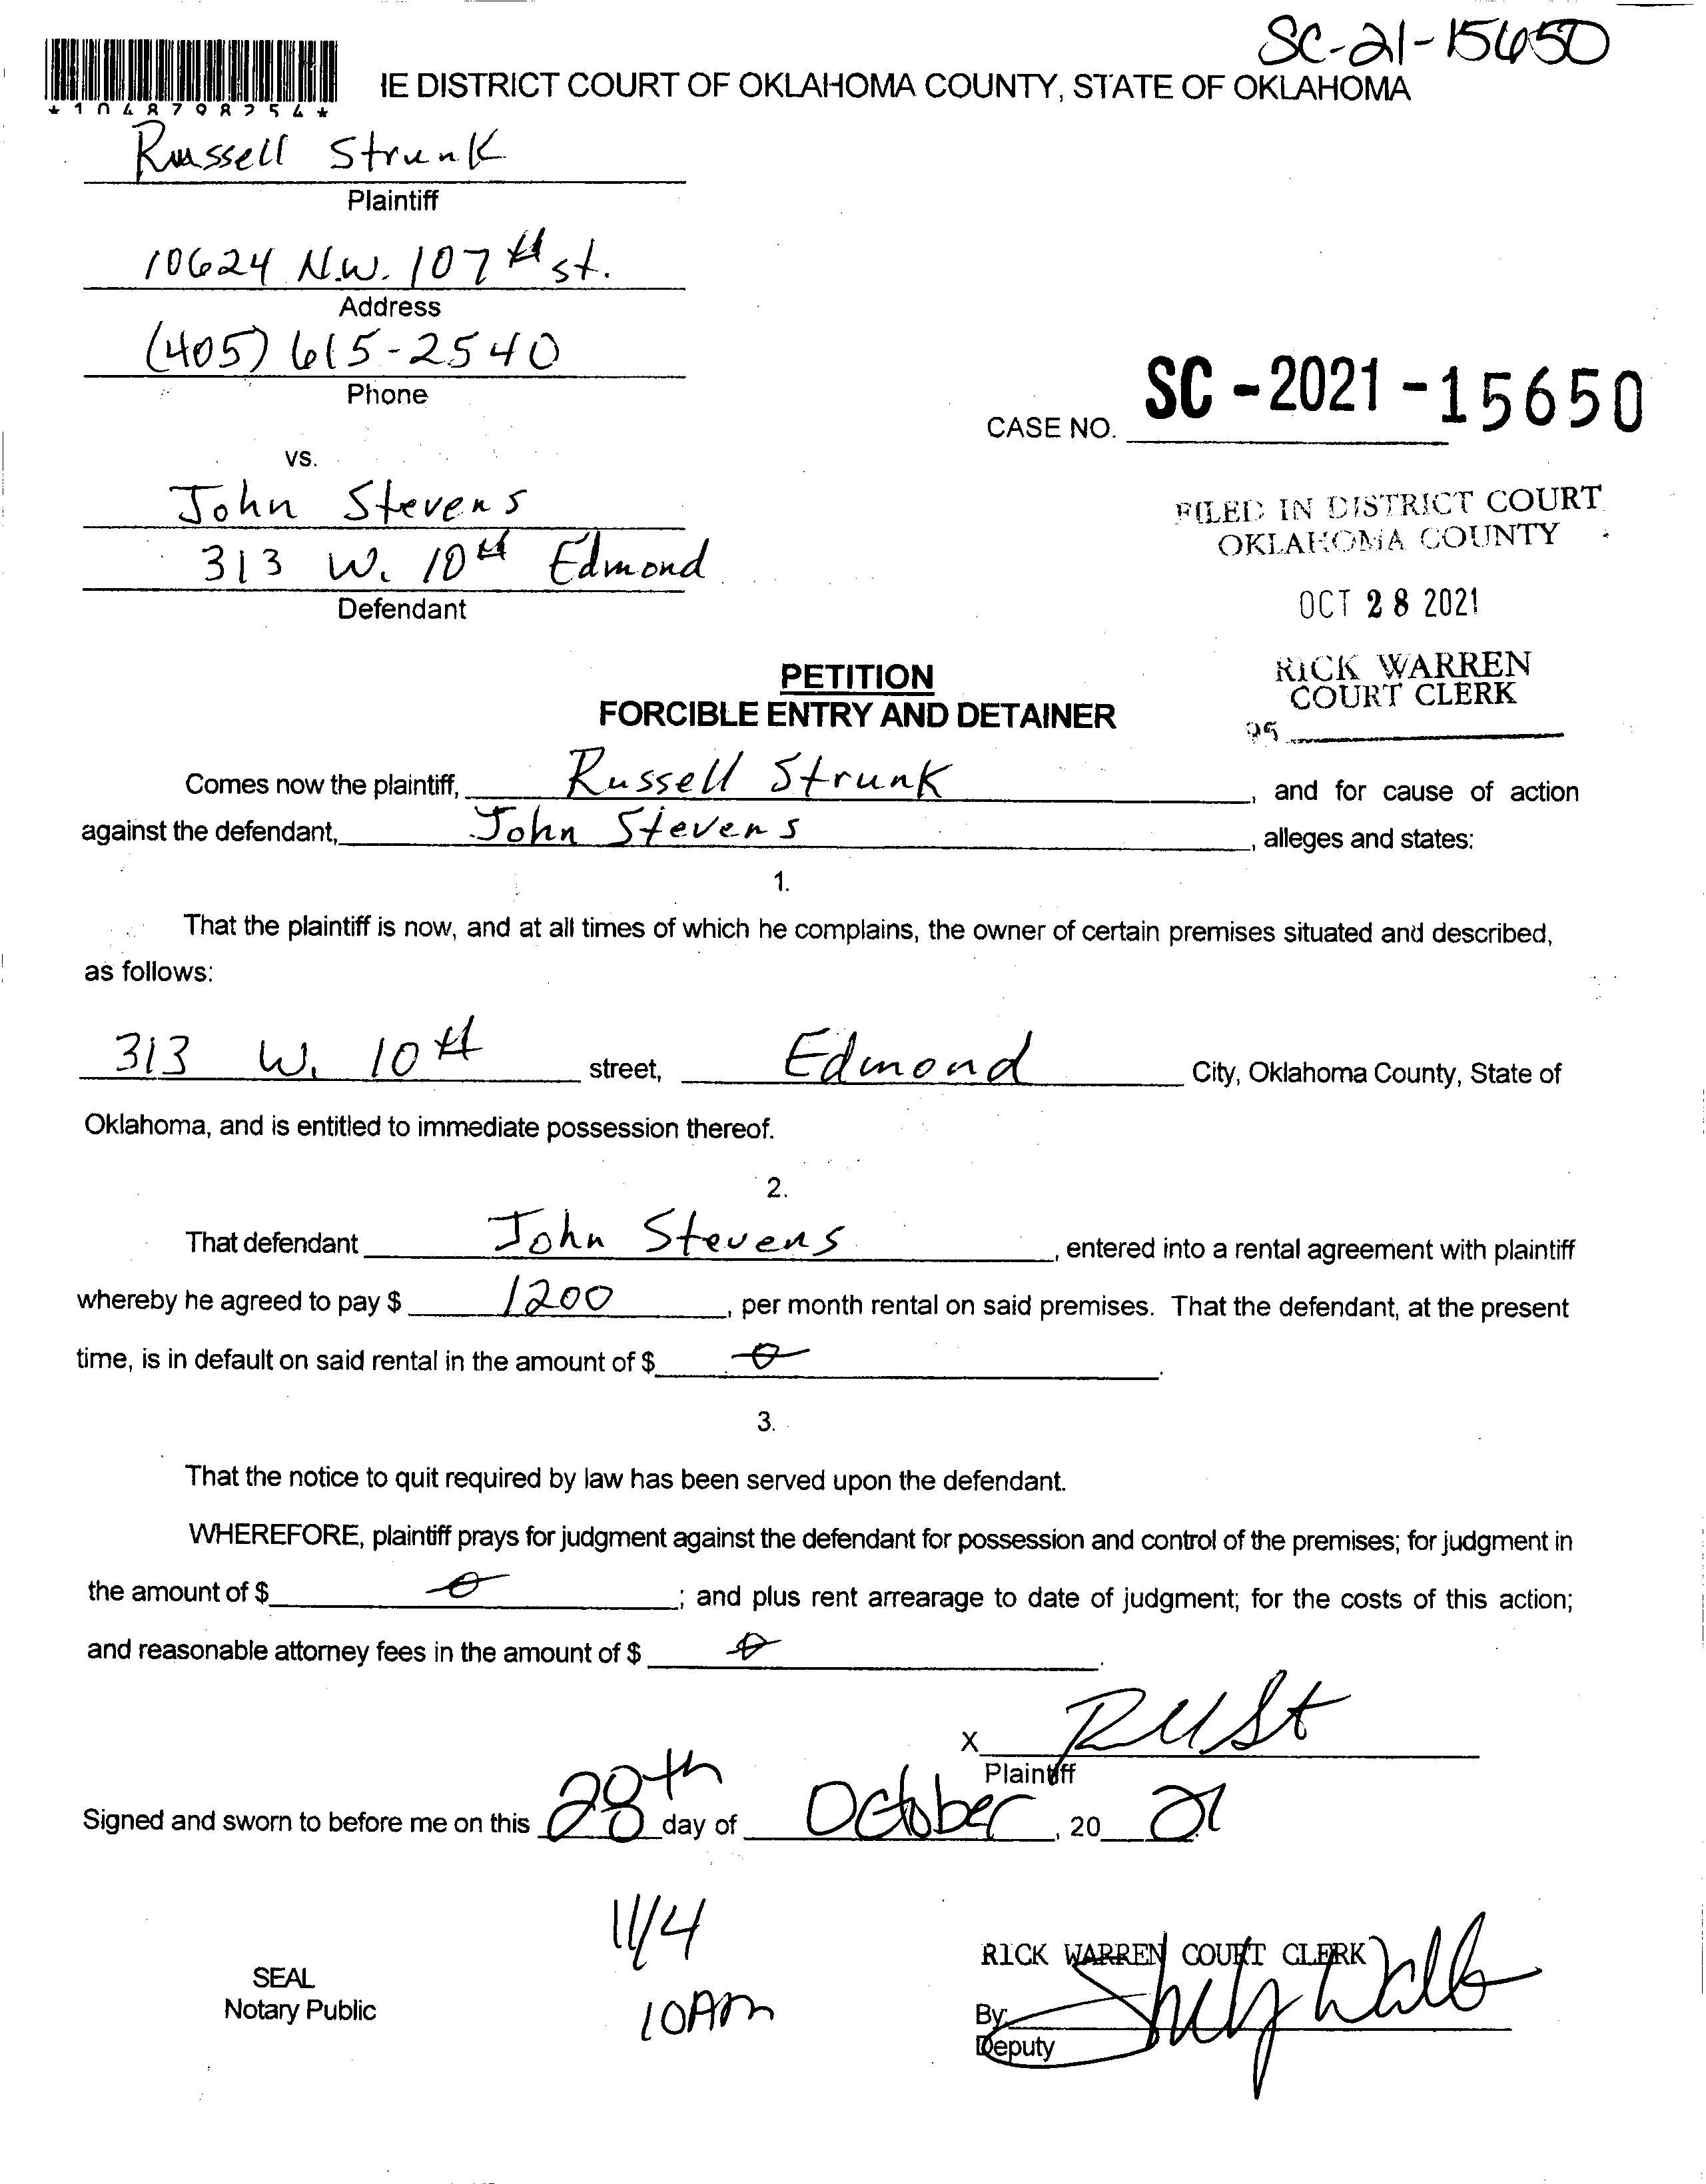 SC-21-15650
IE DISTRICT COURT OF OKLAHOMA COUNTY, STATE OF OKLAHOMA
Russell Strunk
Plaintiff
10624 N.W. 107th st.
Address
(405) 615-2540
Phone
CASE NO. SC-2021-15650
vs.
John Stevens
313 W. 10th Edmond
Defendant
FILED IN DISTRICT COURT
OKLAHOMA COUNTY
OCT 28 2021
RICK WARREN
COURT CLERK
PETITION
FORCIBLE ENTRY AND DETAINER
Comes now the plaintiff, Russell Strunk, and for cause of action
against the defendant, John Stevens, alleges and states:
1.
That the plaintiff is now, and at all times of which he complains, the owner of certain premises situated and described,
as follows:
313 W. 10th street, Edmond City, Oklahoma County, State of
Oklahoma, and is entitled to immediate possession thereof.
2.
That defendant John Stevens, entered into a rental agreement with plaintiff
whereby he agreed to pay $ 1200, per month rental on said premises. That the defendant, at the present
time, is in default on said rental in the amount of $ 0.
3.
That the notice to quit required by law has been served upon the defendant.
WHEREFORE, plaintiff prays for judgment against the defendant for possession and control of the premises; for judgment in
the amount of $ 0; and plus rent arrearage to date of judgment; for the costs of this action;
and reasonable attorney fees in the amount of $ 0.
X
Plaintiff
Signed and sworn to before me on this 28th day of October, 20 21
11/4
10AM
SEAL
Notary Public
RICK WARREN COURT CLERK
By:
Deputy